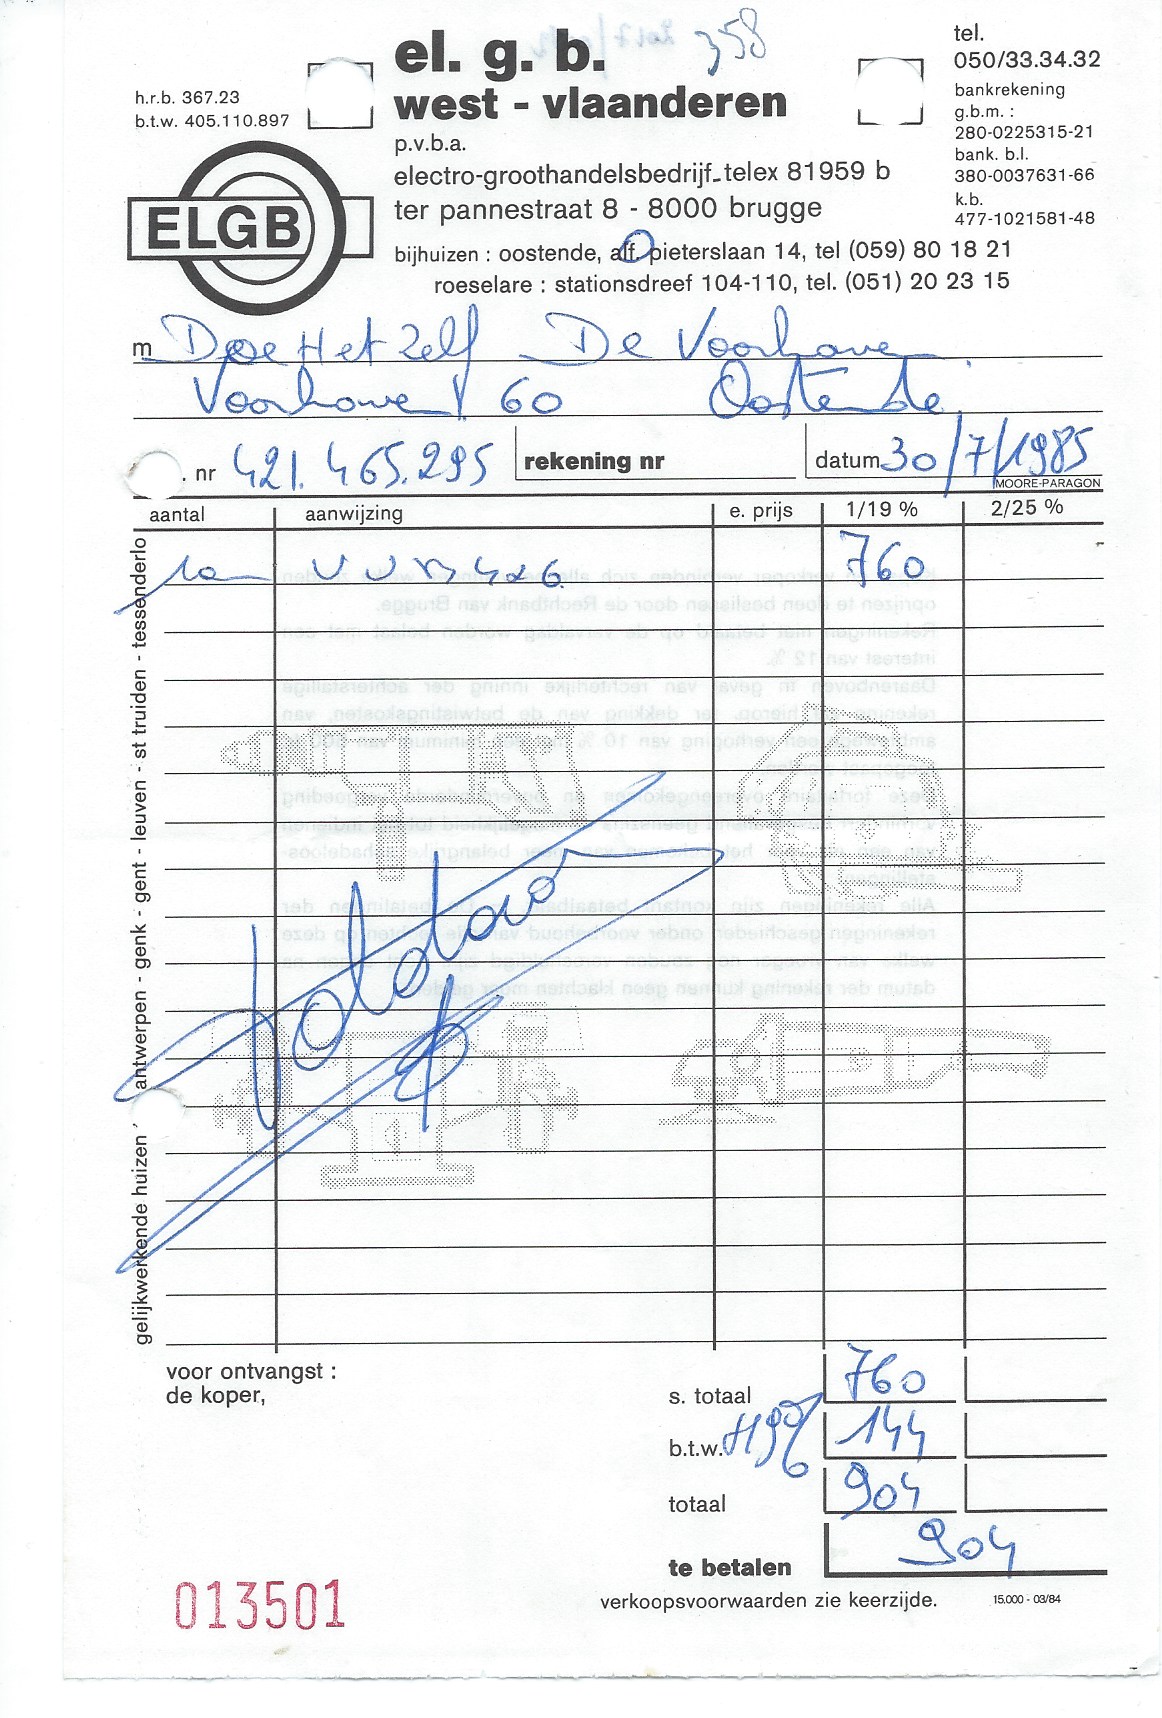 358
el. g. b.
west - vlaanderen
p.v.b.a.
electro-groothandelsbedrijf-telex 81959 b
ter pannestraat 8 - 8000 brugge
bijhuizen : oostende, alf. pieterslaan 14, tel (059) 80 18 21
roeselare : stationsdreef 104-110, tel. (051) 20 23 15
h.r.b. 367.23
b.t.w. 405.110.897
ELGB
tel.
050/33.34.32
bankrekening
g.b.m. :
280-0225315-21
bank. b.l.
380-0037631-66
k.b.
477-1021581-48
m Doe Het Zelf De Voorhaven
Voorhaven 60 Oostende
. nr 421.465.295
rekening nr
datum 30/7/1985
MOORE-PARAGON
aantal aanwijzing e. prijs 1/19 % 2/25 %
VVB 4x6 760
gelijkwerkende huizen antwerpen - genk - gent - leuven - st truiden - tessenderlo
voor ontvangst :
de koper,
s. totaal 760
b.t.w. 19% 144
totaal 904
te betalen 904
013501
verkoopsvoorwaarden zie keerzijde.
15.000 - 03/84